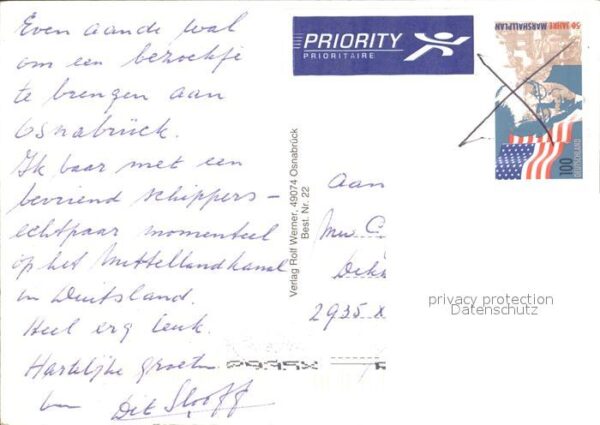 Even aande wal
om een bezoekje
te brengen aan
Osnabrück.
Ik vaar met een
bevriend schippers-
echtpaar momenteel
op het Mittellandkanaal
in Duitsland.
Heel erg leuk.
Hartelijke groeten
van Dit Slooff
PRIORITY
PRIORITAIRE
50 JAHRE MARSHALLPLAN
100
DEUTSCHLAND
Verlag Rolf Werner, 49074 Osnabrück
Best. Nr. 22
aan
Mw C
2935 X
privacy protection
Datenschutz